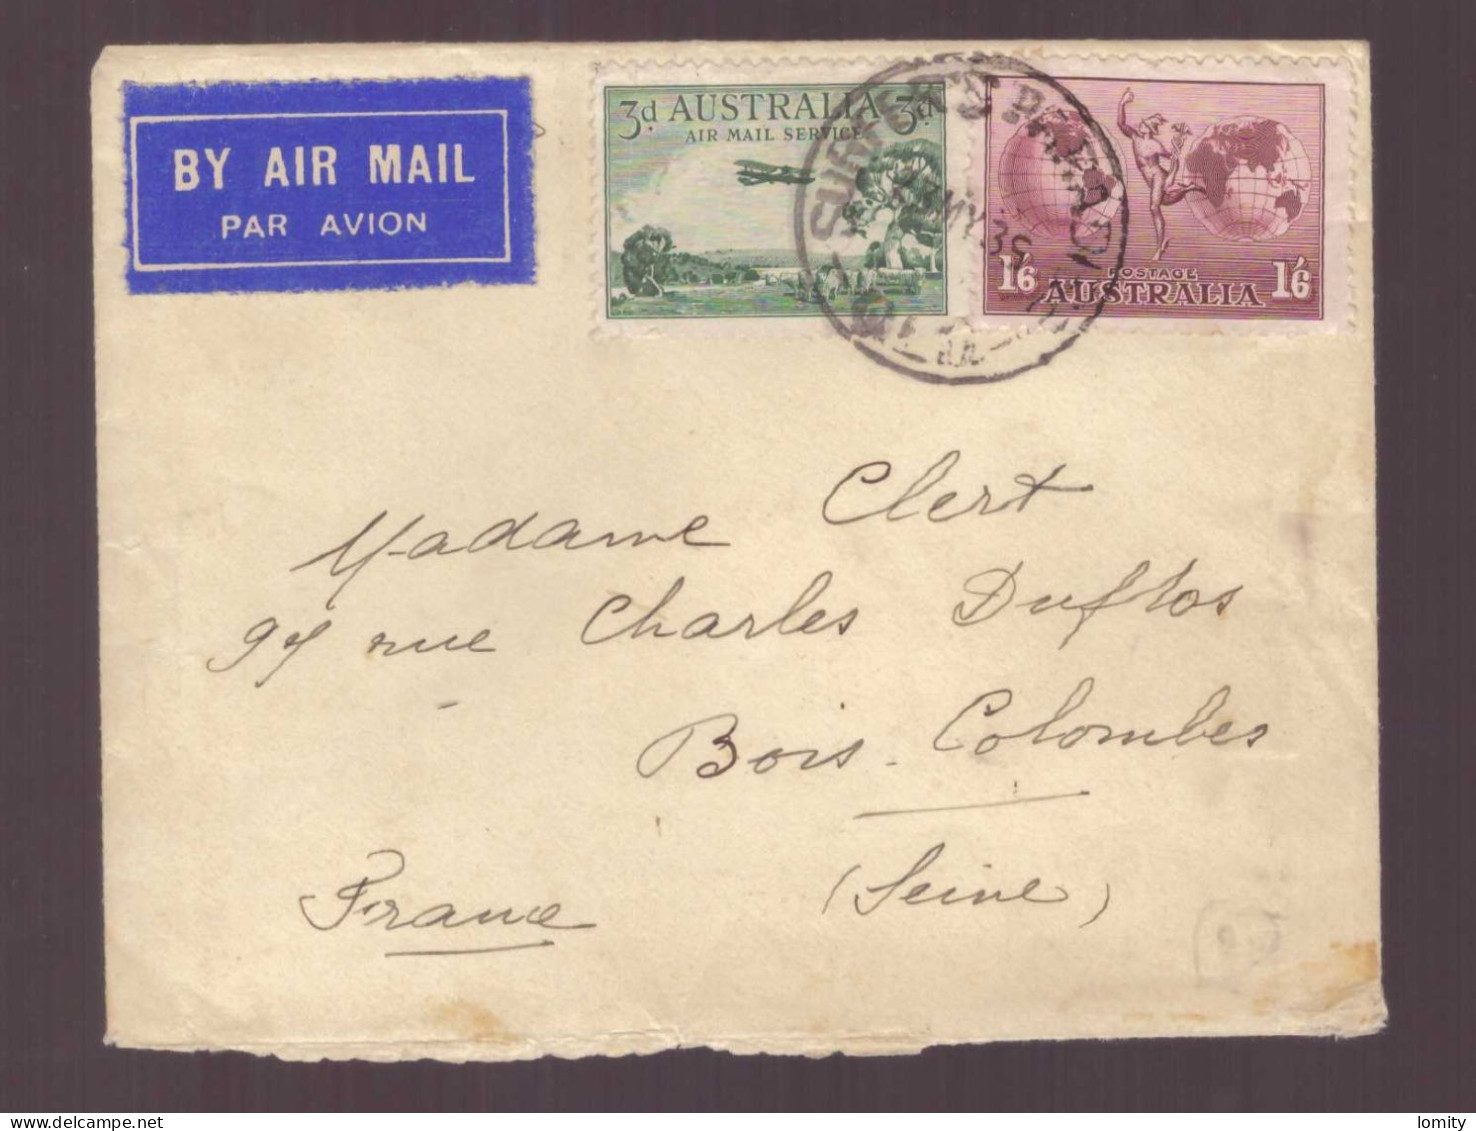 BY AIR MAIL
PAR AVION
3d AUSTRALIA 3d
AIR MAIL SERVICE
SURFERS PARADISE
MY 35
1'6 POSTAGE 1'6
AUSTRALIA
Madame Clert
97 rue Charles Duflos
Bois-Colombes
(Seine)
France
lomity